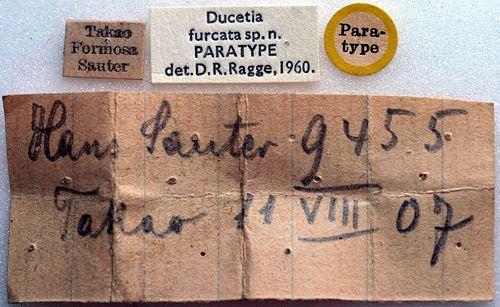 Takao
Formosa
Sauter
Ducetia
furcata sp. n.
PARATYPE
det. D. R. Ragge, 1960.
Para-
type
Hans Sauter 9455
Takao 11 VIII 07